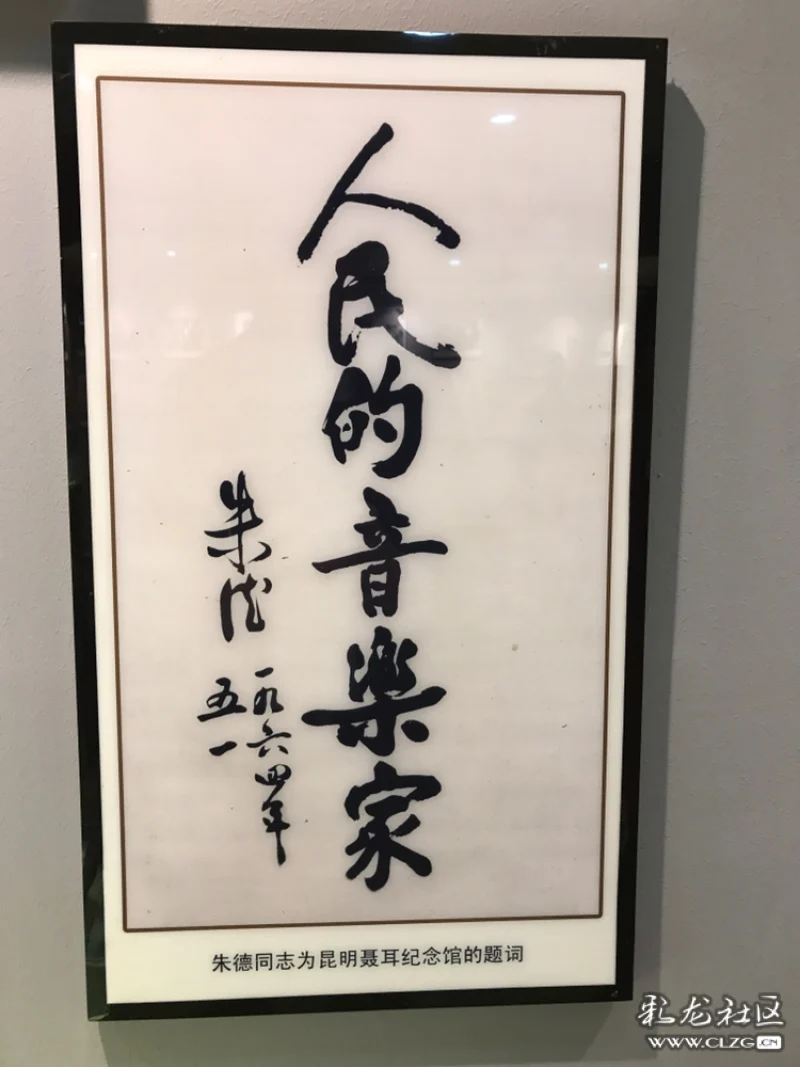 人民的音樂家
朱德
一九六四年
五一
朱德同志为昆明聂耳纪念馆的题词
彩龙社区
WWW.CLZG.CN